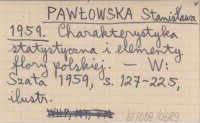 PAWŁOWSKA Stanisława
1959. Charakterystyka
statystyczna i elementy
flory polskiej. — W:
Szata 1959, s. 127-225,
ilustr.